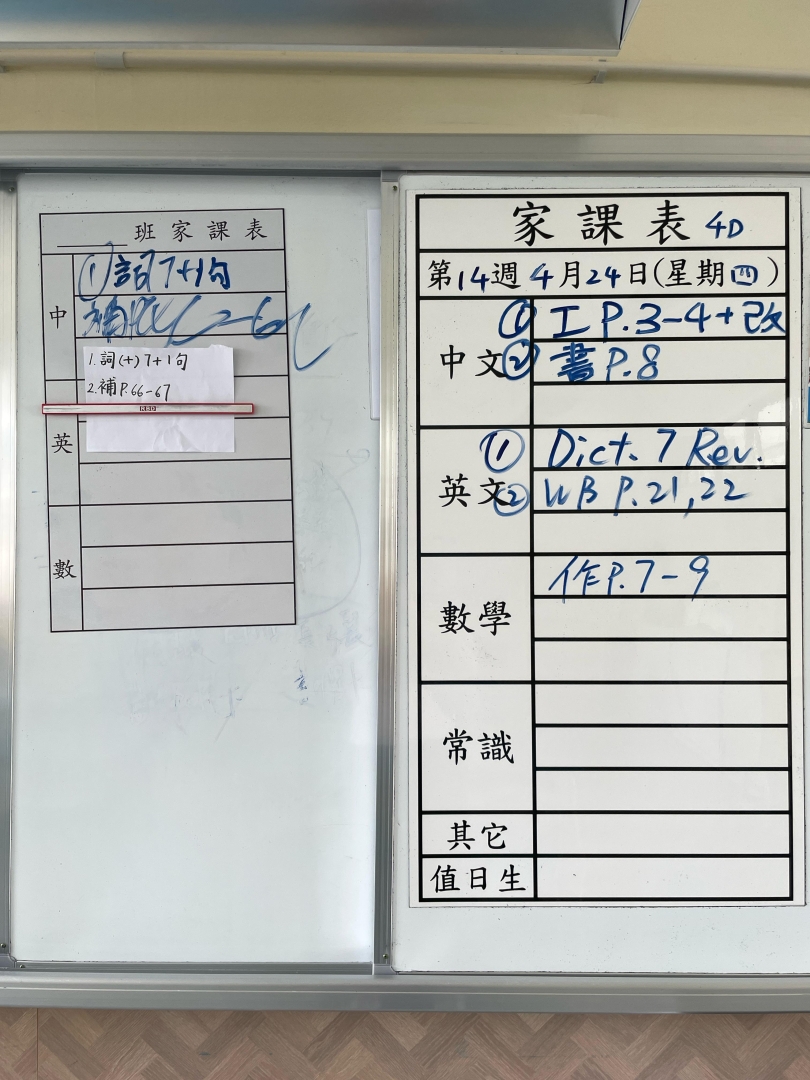 班家課表
中
①詞7+1句
1.詞(+)7+1句
2.補P.66-67
KBD
英
數
家課表 4D
第14週 4月24日(星期四)
中文
① 工 P.3-4+改
② 書 P.8
英文
① Dict. 7 Rev.
② WB P.21,22
數學
作P.7-9
常識
其它
值日生